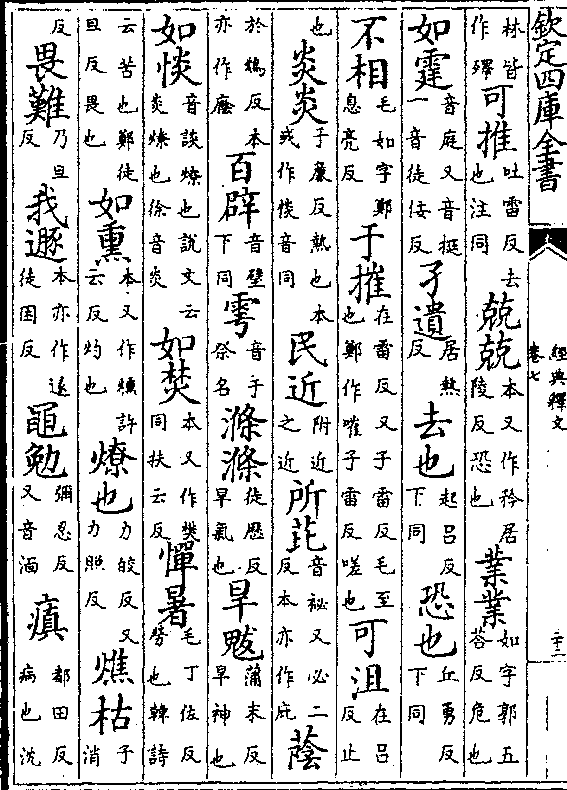 欽定四庫全書
經典釋文
卷七
二十二
林皆作殬可推吐雷反去也注同兢兢本又作矜居陵反恐也業業如字郭五荅反危也
如霆音庭又音挺一音徒佞反孑遺居熱反去也起呂反下同恐也丘勇反下同
不相毛如字鄭息亮反于摧在雷反又子雷反毛至也鄭作嗺子雷反嗟也可沮在呂反止
也炎炎于廉反熱也本或作惔音同民近附近之近所芘音祕又必二反本亦作庇蔭
於鴆反本亦作廕百辟音璧下同雩音于祭名滌滌徒歷反旱氣也旱魃蒲末反旱神也
如惔音談燎也說文云炎燎也徐音炎如焚本又作樊同扶云反憚暑毛丁佐反勞也韓詩
云苦也鄭徒旦反畏也如熏本又作燻許云反灼也燎也力皎反又力照反燋枯子消
反畏難乃旦反我遯本亦作遠徒困反黽勉彌忍反又音湎瘨都田反病也沈